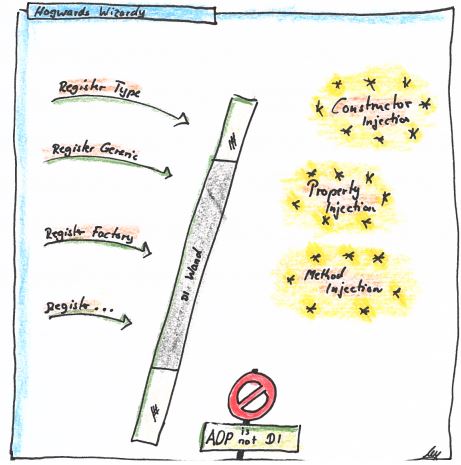 Hogwards Wizardy
Register Type
Register Generic
Register Factory
Register...
DI Wand
Constructor
Injection
Property
Injection
Method
Injection
AOP is not DI